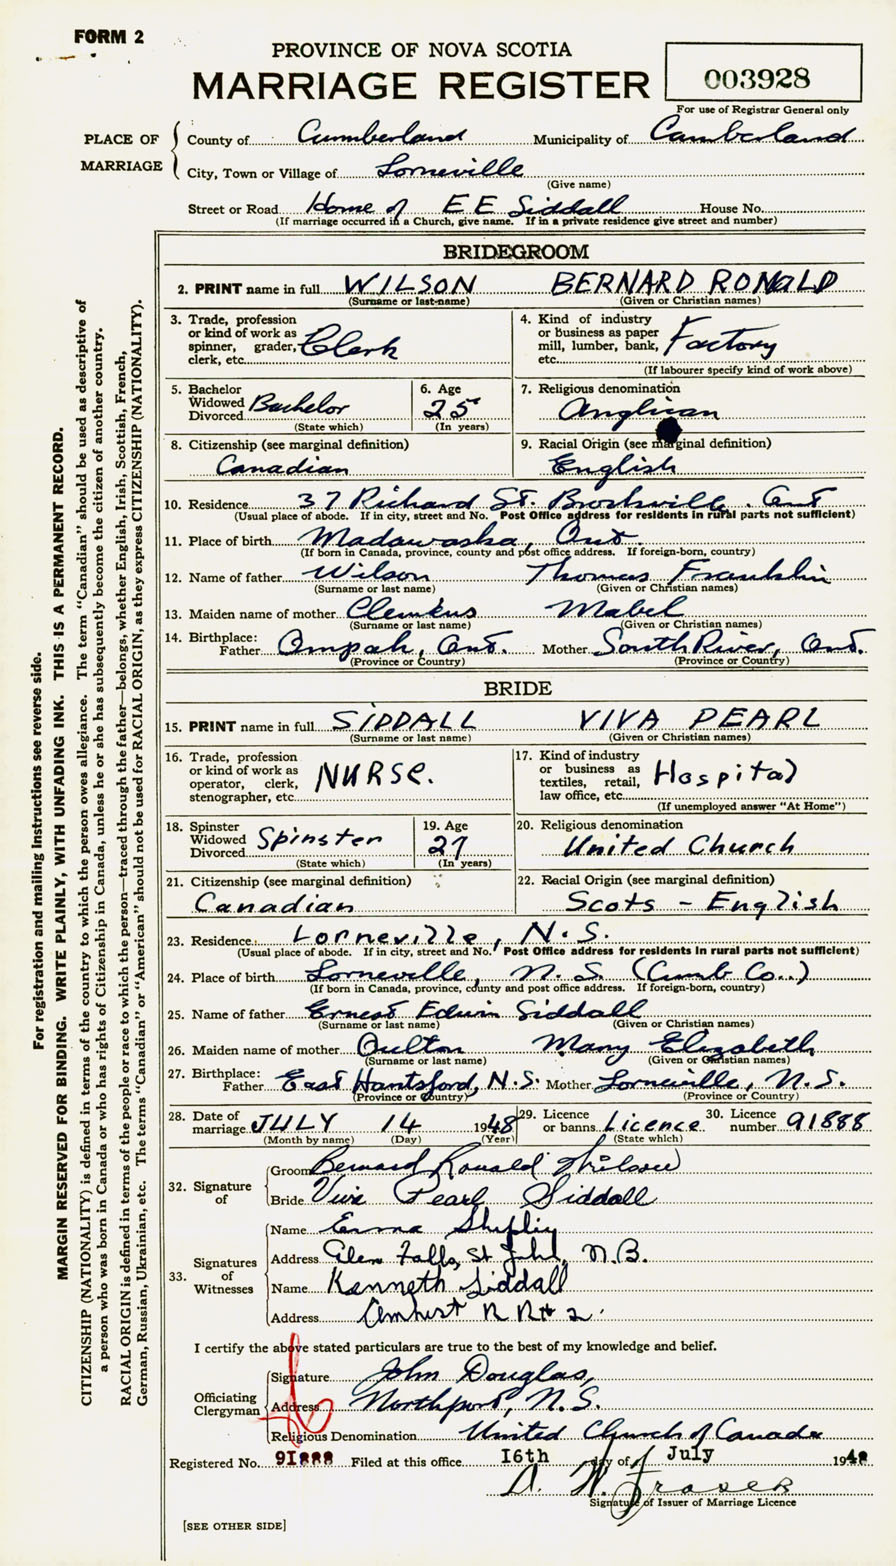 FORM 2
PROVINCE OF NOVA SCOTIA
MARRIAGE REGISTER
003928
For use of Registrar General only
PLACE OF MARRIAGE
County of Cumberland Municipality of Cumberland
City, Town or Village of Lorneville
(Give name)
Street or Road Home of E E Siddall House No.
(If marriage occurred in a Church, give name. If in a private residence give street and number)
BRIDEGROOM
2. PRINT name in full WILSON BERNARD RONALD
(Surname or last-name) (Given or Christian names)
3. Trade, profession or kind of work as spinner, grader, clerk, etc. Clerk
4. Kind of industry or business as paper mill, lumber, bank, etc. Factory
(If labourer specify kind of work above)
5. Bachelor Widowed Divorced Bachelor
(State which)
6. Age 25
(In years)
7. Religious denomination
Anglican
8. Citizenship (see marginal definition)
Canadian
9. Racial Origin (see marginal definition)
English
10. Residence 37 Richard St. Brockville. Ont
(Usual place of abode. If in city, street and No. Post Office address for residents in rural parts not sufficient)
11. Place of birth Madawaska, Ont.
(If born in Canada, province, county and post office address. If foreign-born, country)
12. Name of father Wilson Thomas Franklin
(Surname or last name) (Given or Christian names)
13. Maiden name of mother Mabel
(Surname or last name) (Given or Christian names)
14. Birthplace: Father Ompah, Ont. Mother South River, Ont.
(Province or Country) (Province or Country)
BRIDE
15. PRINT name in full SIDDALL VIVA PEARL
(Surname or last name) (Given or Christian names)
16. Trade, profession or kind of work as operator, clerk, stenographer, etc. NURSE.
17. Kind of industry or business as textiles, retail, law office, etc. Hospital
(If unemployed answer "At Home")
18. Spinster Widowed Divorced Spinster
(State which)
19. Age 27
(In years)
20. Religious denomination
United Church
21. Citizenship (see marginal definition)
Canadian
22. Racial Origin (see marginal definition)
Scots - English
23. Residence: Lorneville, N.S.
(Usual place of abode. If in city, street and No. Post Office address for residents in rural parts not sufficient)
24. Place of birth Lorneville, N.S (Cumb Co..)
(If born in Canada, province, county and post office address. If foreign-born, country)
25. Name of father Ernest Edwin Siddall
(Surname or last name) (Given or Christian names)
26. Maiden name of mother Oulton Mary Elizabeth
(Surname or last name) (Given or Christian names)
27. Birthplace: Father East Hantsford, N.S. Mother Lorneville, N.S.
(Province or Country) (Province or Country)
28. Date of marriage JULY 14 1948
(Month by name) (Day) (Year)
29. Licence or banns Licence
(State which)
30. Licence number 91888
32. Signature of
Groom Bernard Ronald Wilson
Bride Viva Pearl Siddall
33. Signatures of Witnesses
Name Erma Shipley
Address Glen Falls, St John, N.B.
Name Kenneth Siddall
Address Amherst R R # 2
I certify the above stated particulars are true to the best of my knowledge and belief.
Officiating Clergyman
Signature John Douglas
Address Northport, N.S.
Religious Denomination United Church of Canada
Registered No. 91888 Filed at this office 16th day of July 1948
Signature of Issuer of Marriage Licence
[SEE OTHER SIDE]
For registration and mailing Instructions see reverse side.
MARGIN RESERVED FOR BINDING. WRITE PLAINLY, WITH UNFADING INK. THIS IS A PERMANENT RECORD.
CITIZENSHIP (NATIONALITY) is defined in terms of the country to which the person owes allegiance. The term "Canadian" should be used as descriptive of
a person who was born in Canada or who has rights of Citizenship in Canada, unless he or she has subsequently become the citizen of another country.
RACIAL ORIGIN is defined in terms of the people or race to which the person—traced through the father—belongs, whether English, Irish, Scottish, French,
German, Russian, Ukrainian, etc. The terms "Canadian" or "American" should not be used for RACIAL ORIGIN, as they express CITIZENSHIP (NATIONALITY).